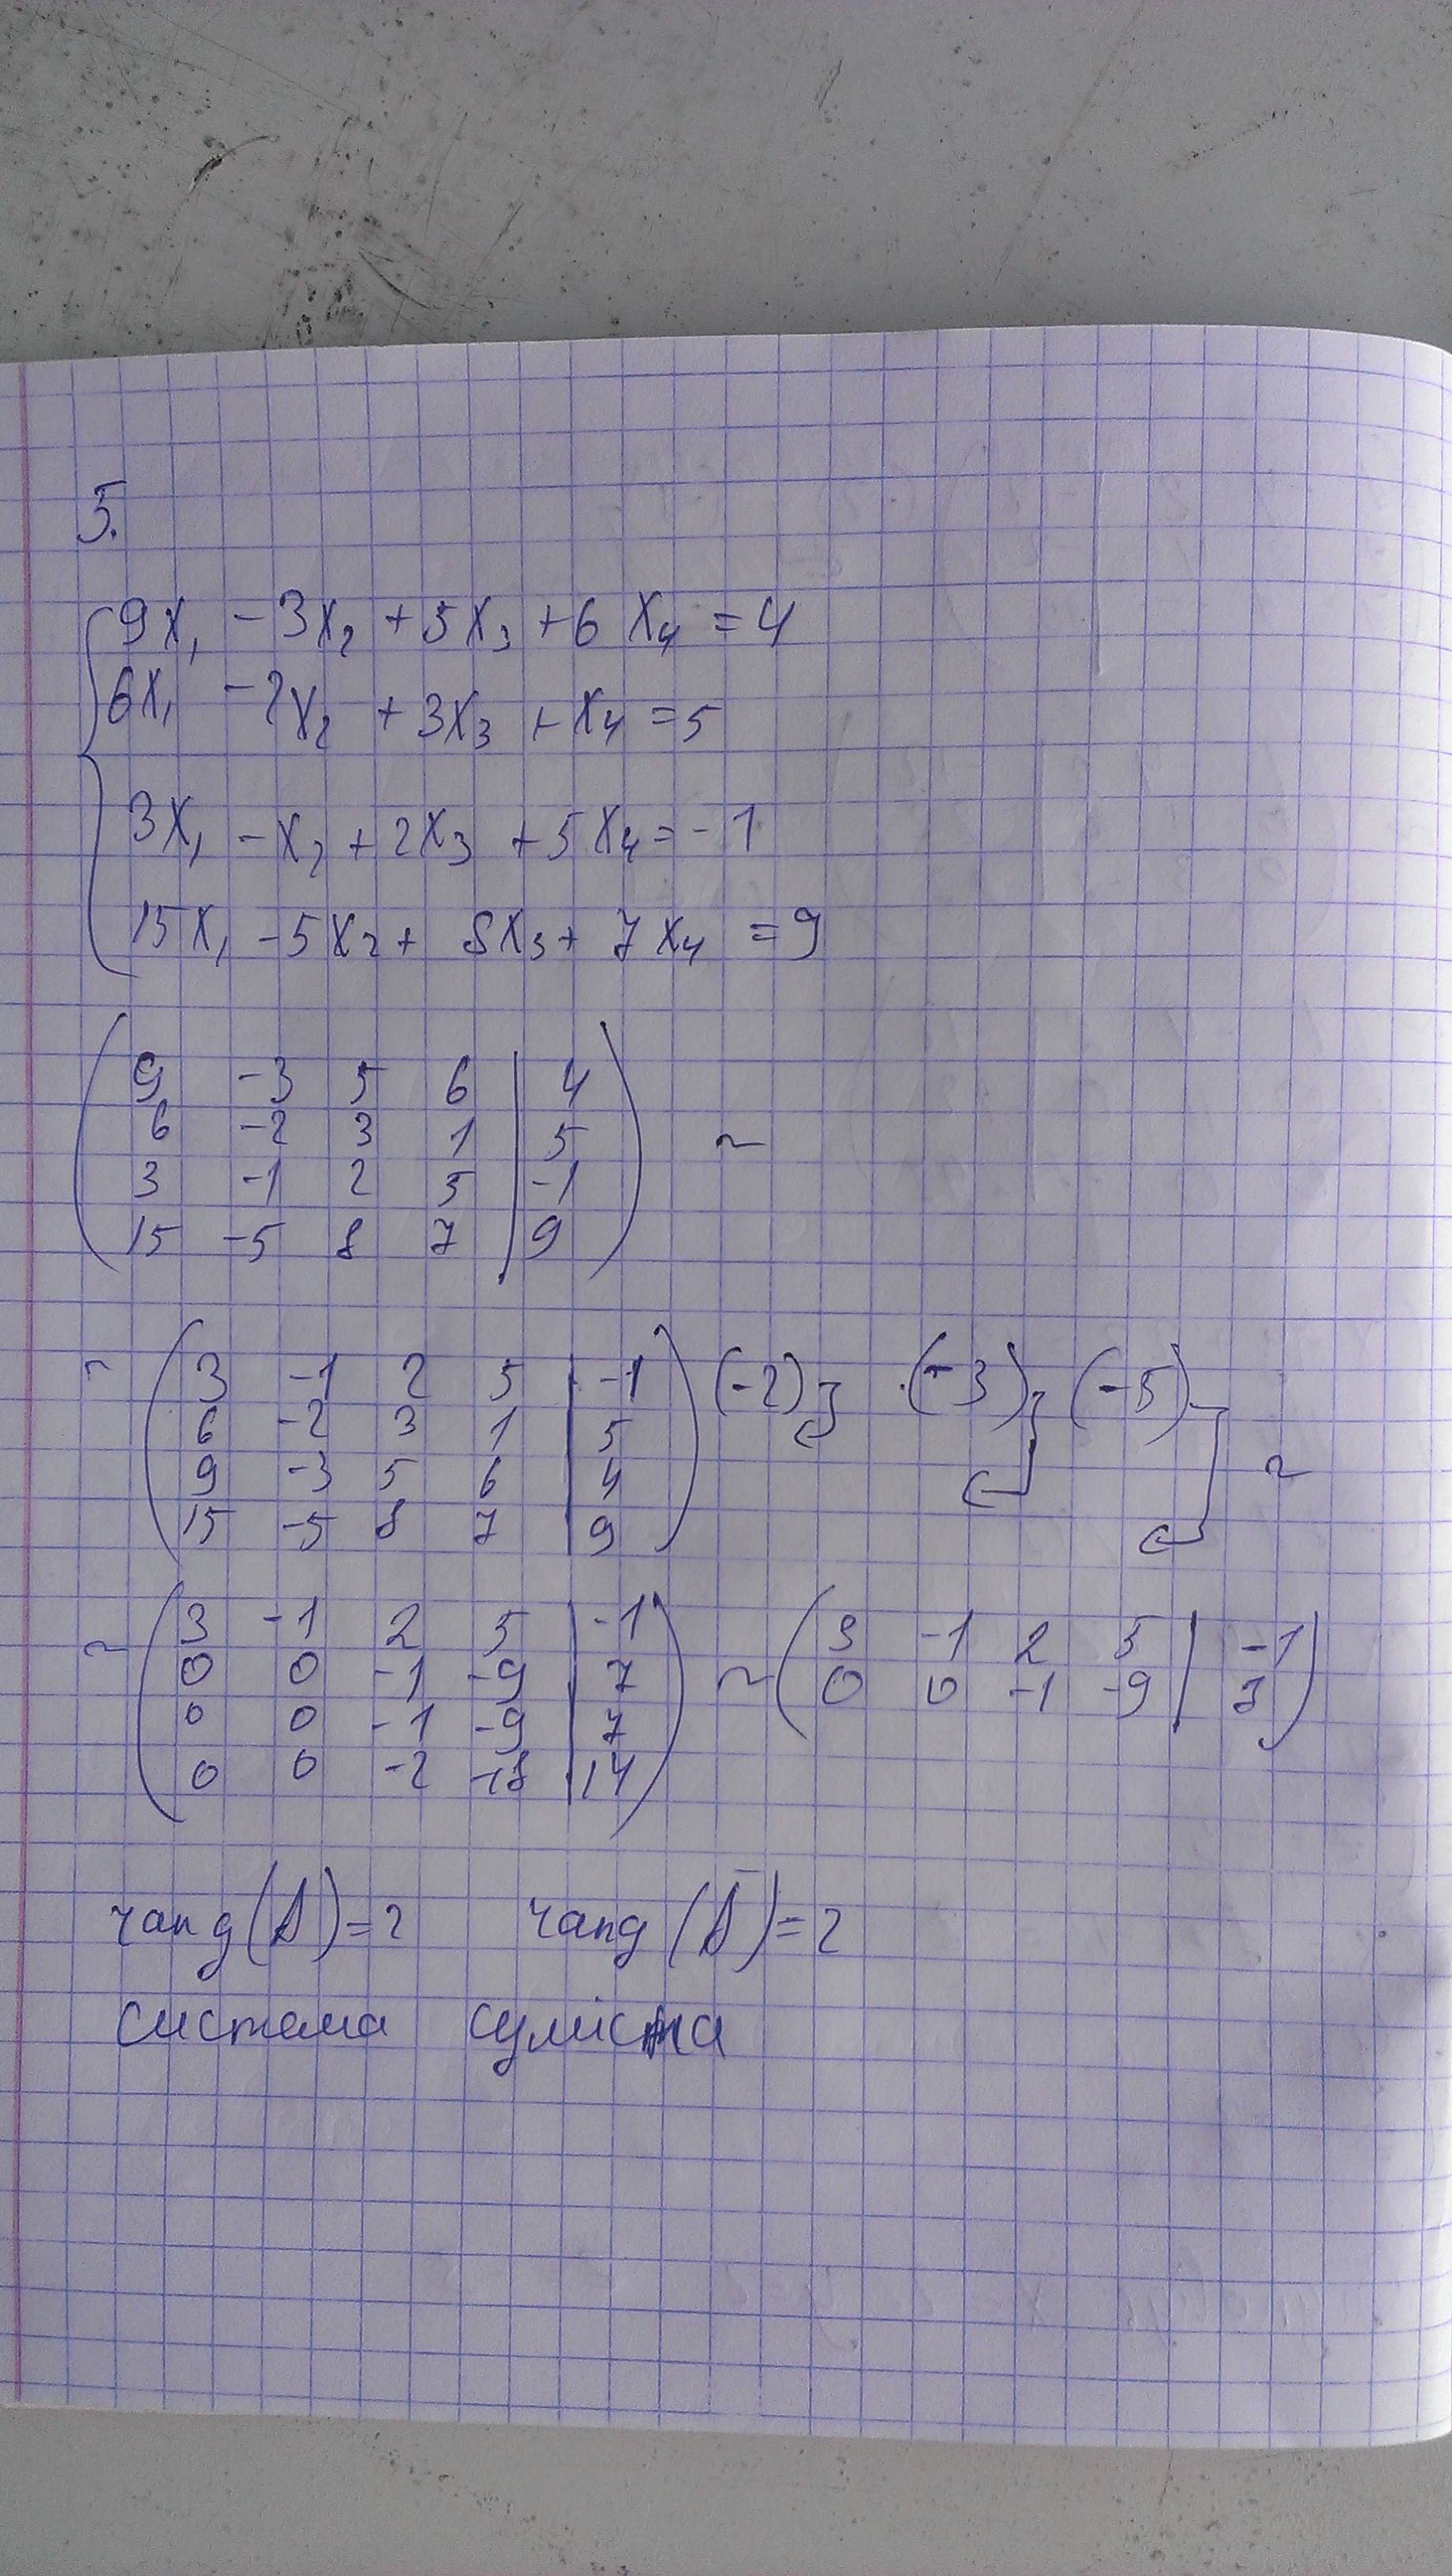 5.
9x₁ - 3x₂ + 5x₃ + 6x₄ = 4
6x₁ - 2x₂ + 3x₃ + x₄ = 5
3x₁ - x₂ + 2x₃ + 5x₄ = -1
15x₁ - 5x₂ + 8x₃ + 7x₄ = 9
9 -3 5 6 | 4
6 -2 3 1 | 5 ~
3 -1 2 5 | -1
15 -5 8 7 | 9
~ 3 -1 2 5 | -1 (-2) ·(-3) (-5)
6 -2 3 1 | 5
9 -3 5 6 | 4 ~
15 -5 8 7 | 9
~ 3 -1 2 5 | -1 ~ 3 -1 2 5 | -1
0 0 -1 -9 | 7 0 0 -1 -9 | 7
0 0 -1 -9 | 7
0 0 -2 -18 | 14
rang(A) = 2 rang(Ā) = 2
система сумісна